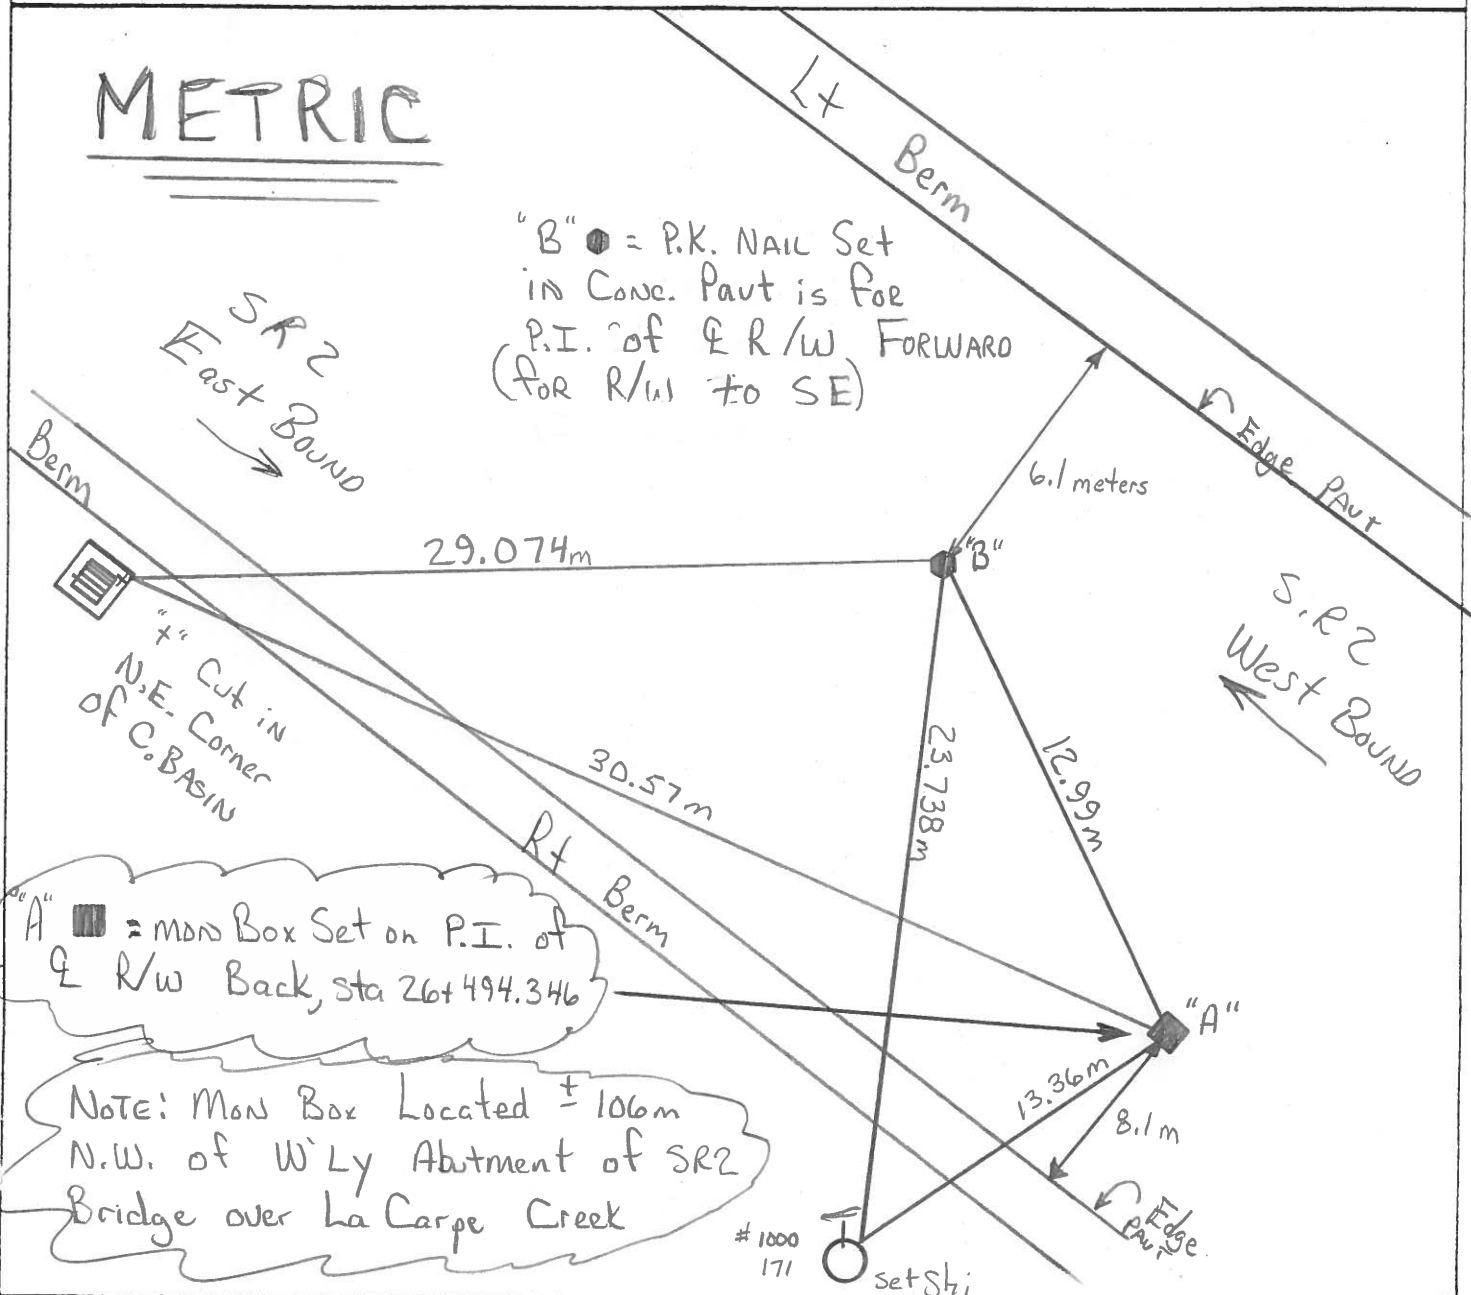 METRIC
Lt Berm
"B" = P.K. NAIL Set
in Conc. Pavt is for
P.I. of ℄ R/W FORWARD
(for R/W to SE)
SR2
East Bound
Berm
Edge Pavt
6.1 meters
29.074m
"B"
S.R2
West Bound
"x" Cut in
N.E. Corner
of C. BASIN
30.57m
23.738m
12.99m
Rt Berm
"A" = mon Box Set on P.I. of
℄ R/W Back, sta 26+494.346
"A"
13.36m
8.1m
NOTE: Mon Box Located ± 106m
N.W. of W'Ly Abutment of SR2
Bridge over La Carpe Creek
Edge
Pavt
#1000
171
set